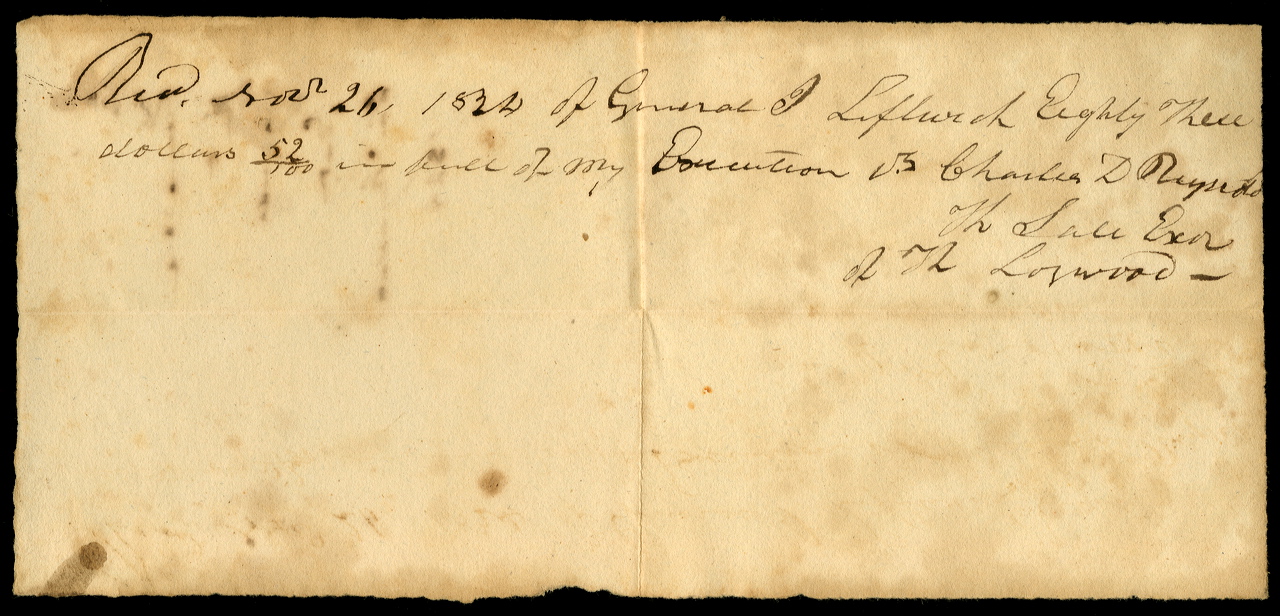 Recd. Novr 26, 1824 of General J Leftwich Eighty Three
dollars 52/100 in full of my Execution vs Charles D Reynolds
Th Sale Exor
of Th Logwood —